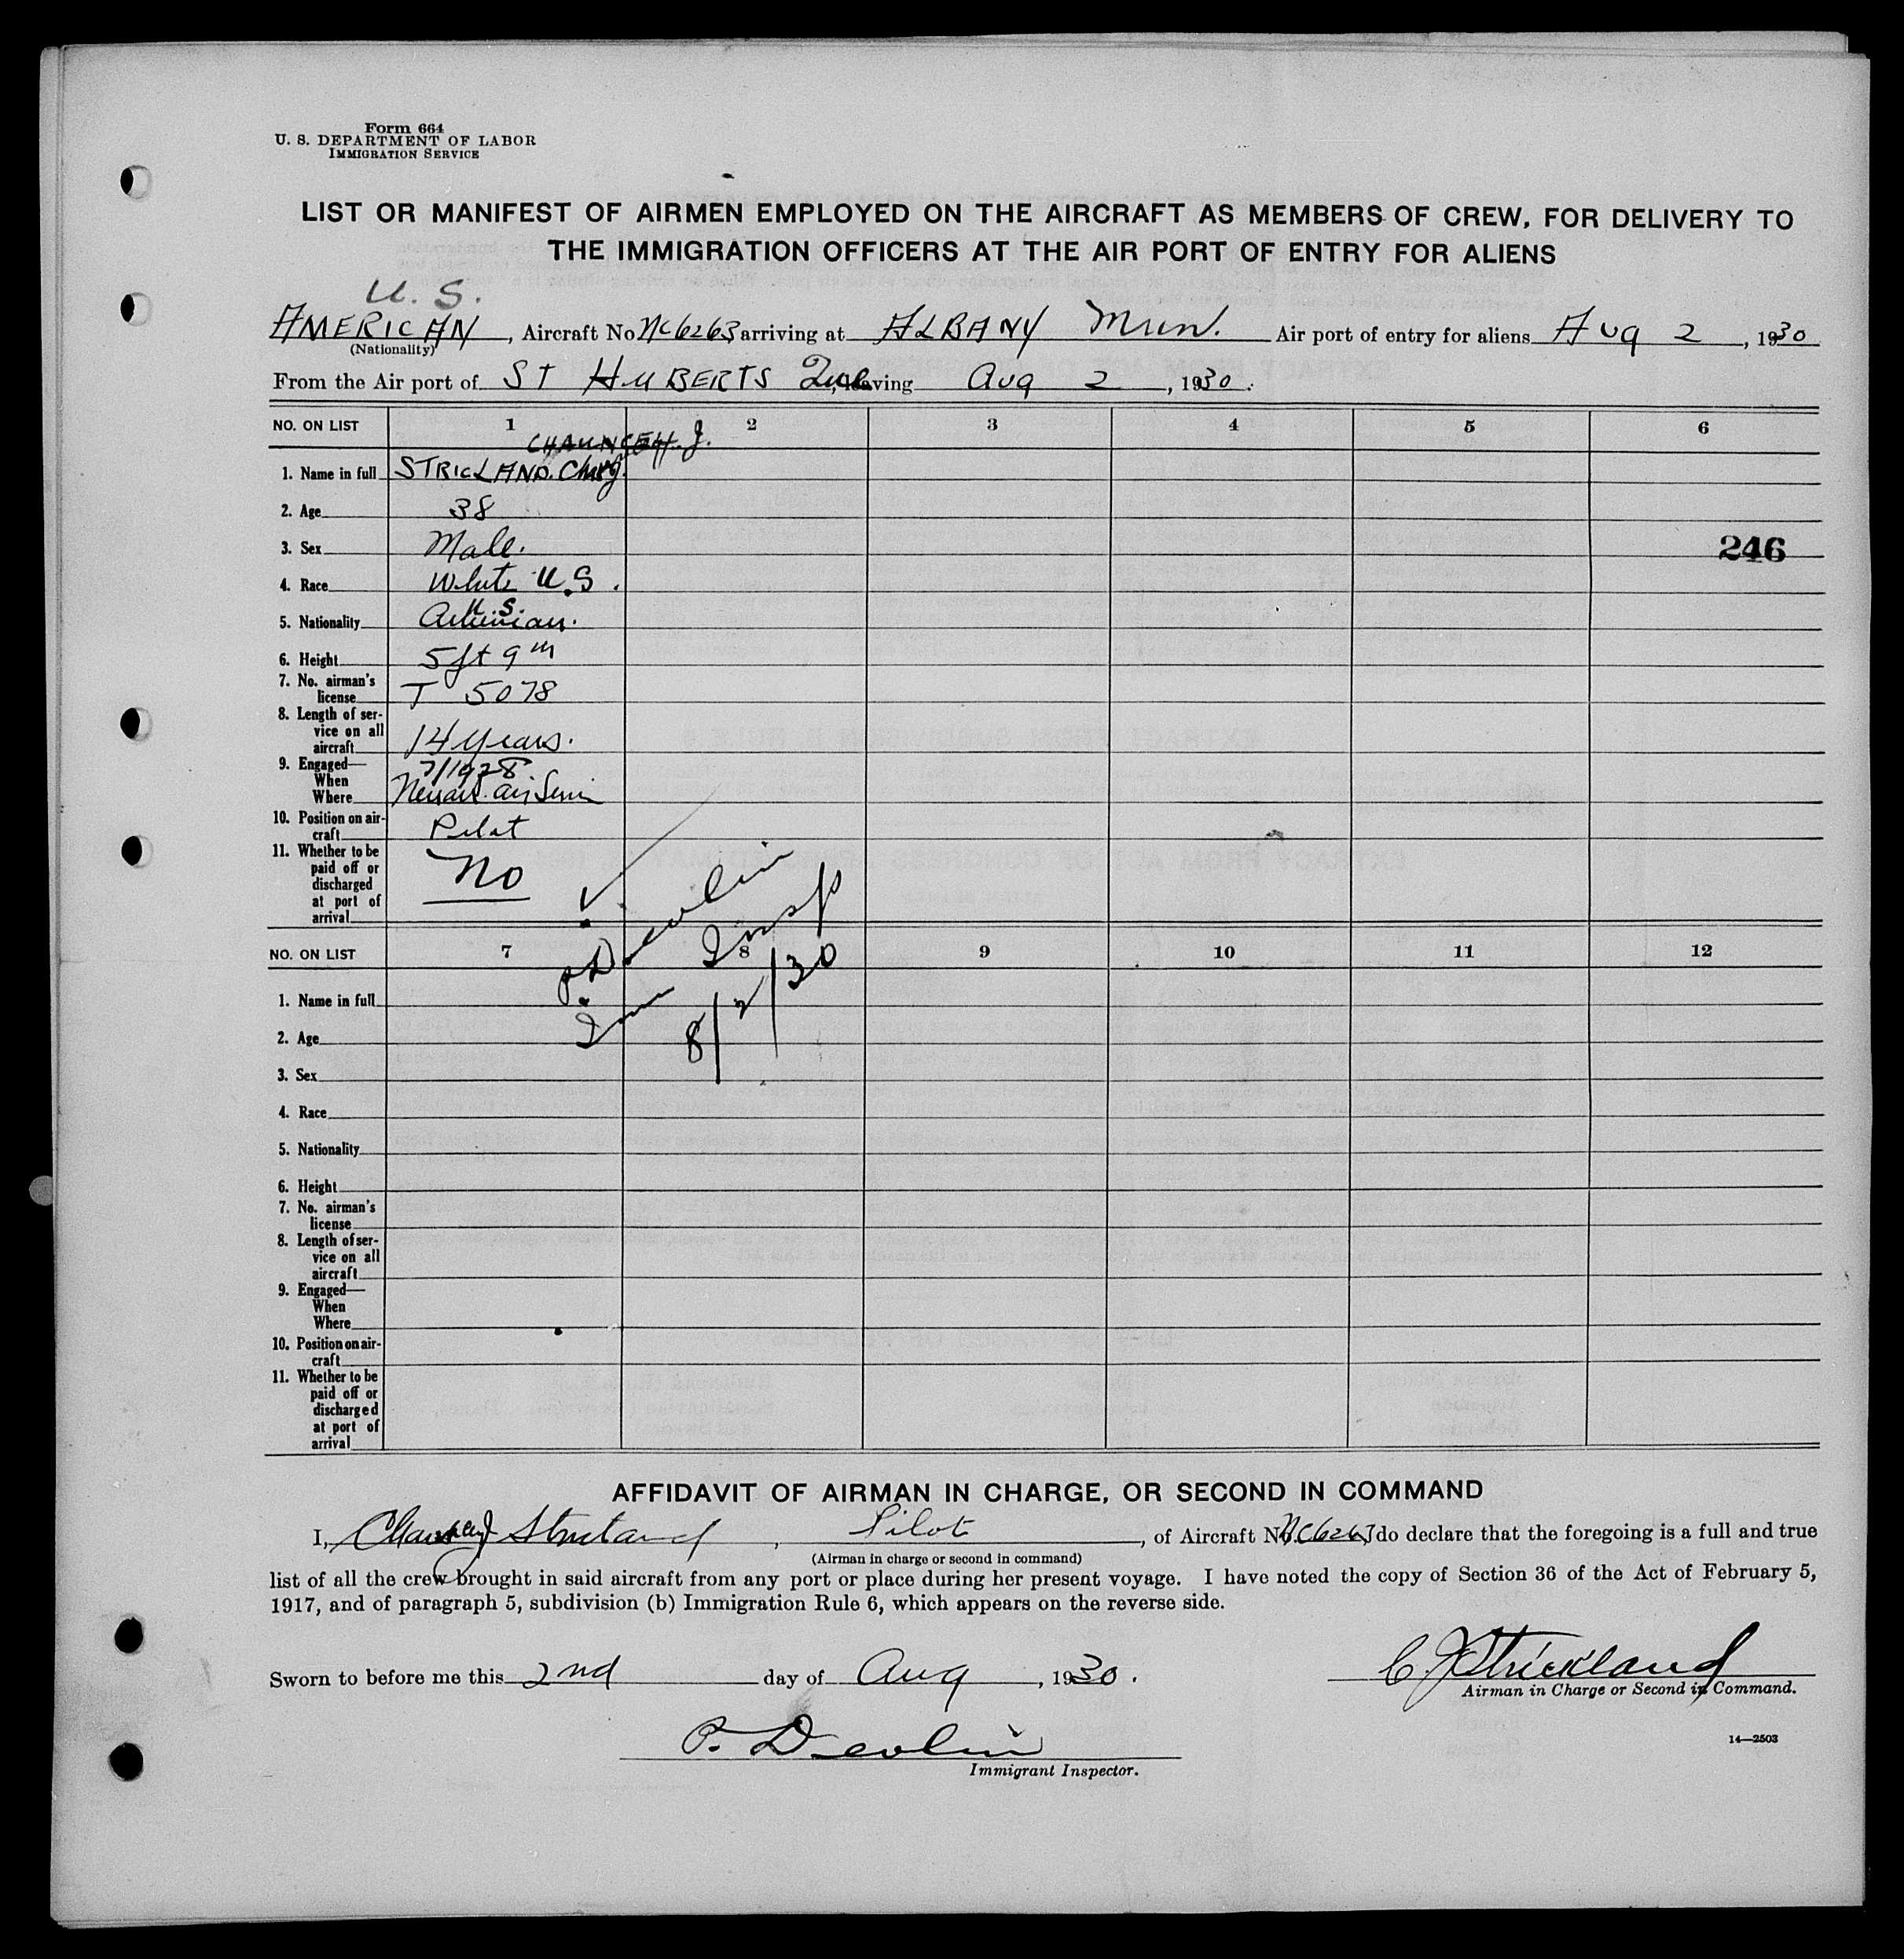 Form 664
U. S. DEPARTMENT OF LABOR
IMMIGRATION SERVICE
LIST OR MANIFEST OF AIRMEN EMPLOYED ON THE AIRCRAFT AS MEMBERS OF CREW, FOR DELIVERY TO
THE IMMIGRATION OFFICERS AT THE AIR PORT OF ENTRY FOR ALIENS
U. S.
AMERICAN, Aircraft No. NC6263 arriving at ALBANY Mun. Air port of entry for aliens Aug 2, 1930
(Nationality)
From the Air port of ST HUBERTS Que, leaving Aug 2, 1930.
NO. ON LIST 1 2 3 4 5 6
CHAUNCEY. J.
1. Name in full STRICLAND.
2. Age 38
3. Sex Male.
246
4. Race White U.S.
U.S.
5. Nationality
6. Height 5 ft 9 in
7. No. airman's
license T 5078
8. Length of ser-
vice on all
aircraft 14 years.
9. Engaged—
When 7/1928
Where Newark air
10. Position on air-
craft Pilot
11. Whether to be
paid off or
discharged
at port of
arrival No
P. Devlin
Imm Insp
8/2/30
NO. ON LIST 7 8 9 10 11 12
1. Name in full
2. Age
3. Sex
4. Race
5. Nationality
6. Height
7. No. airman's
license
8. Length of ser-
vice on all
aircraft
9. Engaged—
When
Where
10. Position on air-
craft
11. Whether to be
paid off or
discharged
at port of
arrival
AFFIDAVIT OF AIRMAN IN CHARGE, OR SECOND IN COMMAND
I, Chauncey J Strickland, Pilot, of Aircraft No. NC6263 do declare that the foregoing is a full and true
(Airman in charge or second in command)
list of all the crew brought in said aircraft from any port or place during her present voyage. I have noted the copy of Section 36 of the Act of February 5,
1917, and of paragraph 5, subdivision (b) Immigration Rule 6, which appears on the reverse side.
Sworn to before me this 2nd day of Aug, 1930.
C J Strickland
Airman in Charge or Second in Command.
P. Devlin
Immigrant Inspector.
14—2503